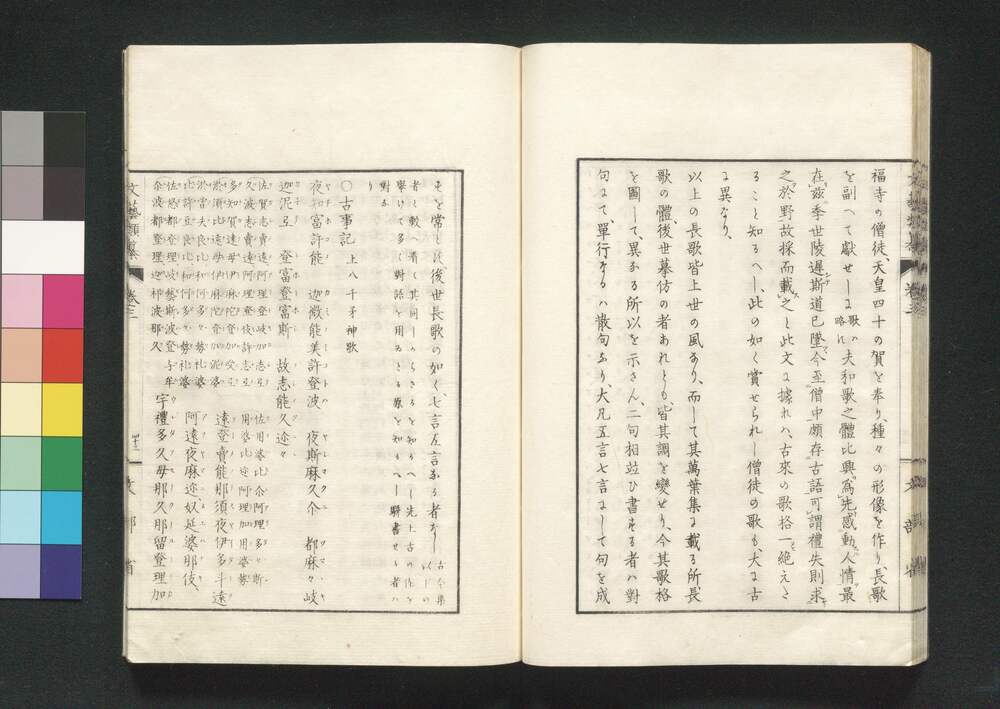 福寺の僧徒、天皇四十の賀を奉り、種々の形像を作り、長歌
を副へて獻せしに歌ハ略に夫和歌之體比興爲先感動人情最
在茲季世陵遲斯道已墜今至僧中頗存古語可謂禮失則求
之於野故採而載之と此文に據れハ、古來の歌格一絶えさ
ること知るへし、此の如く賞せられし僧徒の歌も、大に古
に異なり、
以上の長歌皆上世の風あり、而して其萬葉集に載る所長
歌の體、後世摹仿の者あれとも、皆其調を變せり、今其歌格
を圖して、異なる所以を示さん、二句相竝ひ書せる者ハ對
句にて、單行なるハ散句なり、大凡五言七言にして句を成
すを常とし後世長歌の如く、七言五言なる者なし古今集以下の
者と較へ看て其同しからさるを知るへし先上古の作を
擧けて多く對語を用ゐたる原を知るへし駢書せる者ハ
對なり
○古事記 上八千矛神歌
夜知富許能 迦微能美許登波 夜斯麻久爾 都麻々岐
迦泥弖 登富登富斯 故志能久邇々
佐賀志賣遠阿理登岐加志弖
久波志賣遠阿理登伎許志弖 佐用婆比爾阿理多々斯
用婆比邇阿理加用婆勢
多知賀遠母伊麻陀登加受弖
淤須比遠母伊麻陀登加泥婆 遠登賣能那須夜伊多斗遠
淤曾夫良比和何多々勢禮婆
比許豆良比和何多々勢禮婆 阿遠夜麻邇、奴延婆那伎、
佐怒都登理岐藝斯波登與牟
爾波都登理迦祁波那久 宇禮多久母那久那留登理加
文藝類纂 卷三
四十三
文部省